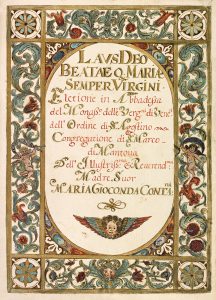 LAVS DEO
BEATAE Q. MARIÆ
SEMPER VIRGINI.
Eletione in Abbadessa
del Monast.º delle Verg.ni di Ven.a
dell' Ordine di S. Agostino
Congregatione di S. Marco
di Mantoua
Dell' Illustris.ma e Reuerend.ma
Madre Suor
MARIA GIOCONDA CONTA